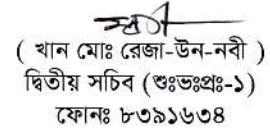 ( খান মোঃ রেজা-উন-নবী )
দ্বিতীয় সচিব (শুঃভঃপ্রঃ-১)
ফোনঃ ৮৩৯১৬৩৪